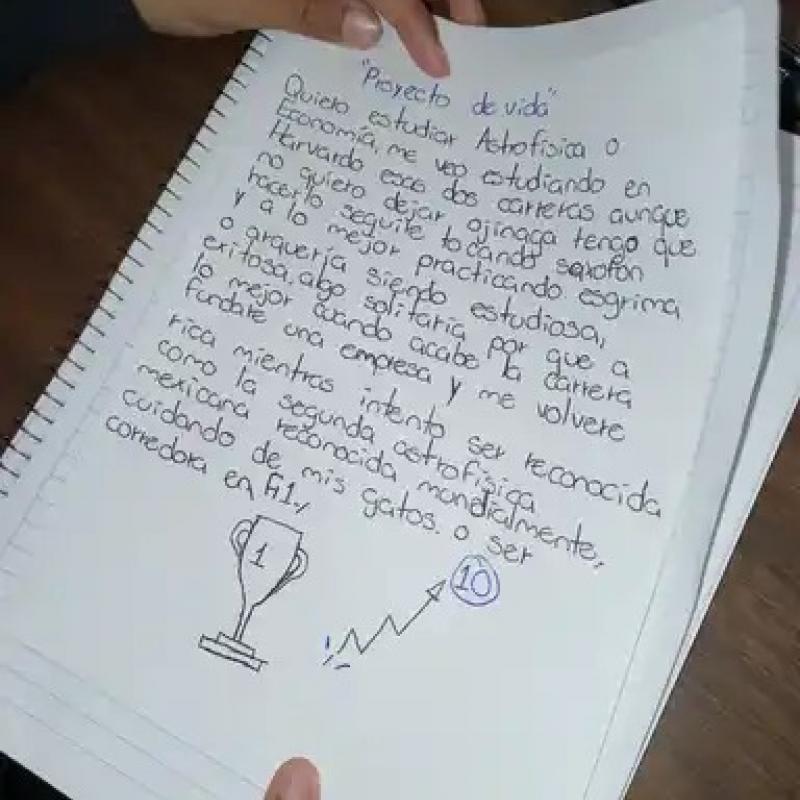 "Proyecto de vida"
Quiero estudiar Astrofísica o
Economía, me veo estudiando en
Harvardo esas dos carreras aunque
no quiero dejar ojinaga tengo que
hacerlo seguire tocando saxofon
y a lo mejor practicando esgrima
o arquería siendo estudiosa,
exitosa, algo solitaria por que a
lo mejor cuando acabe la carrera
fundare una empresa y me volvere
rica mientras intento ser reconocida
como la segunda astrofísica
mexicana reconocida mundialmente,
cuidando de mis gatos. o ser
corredora en F1.
1
10